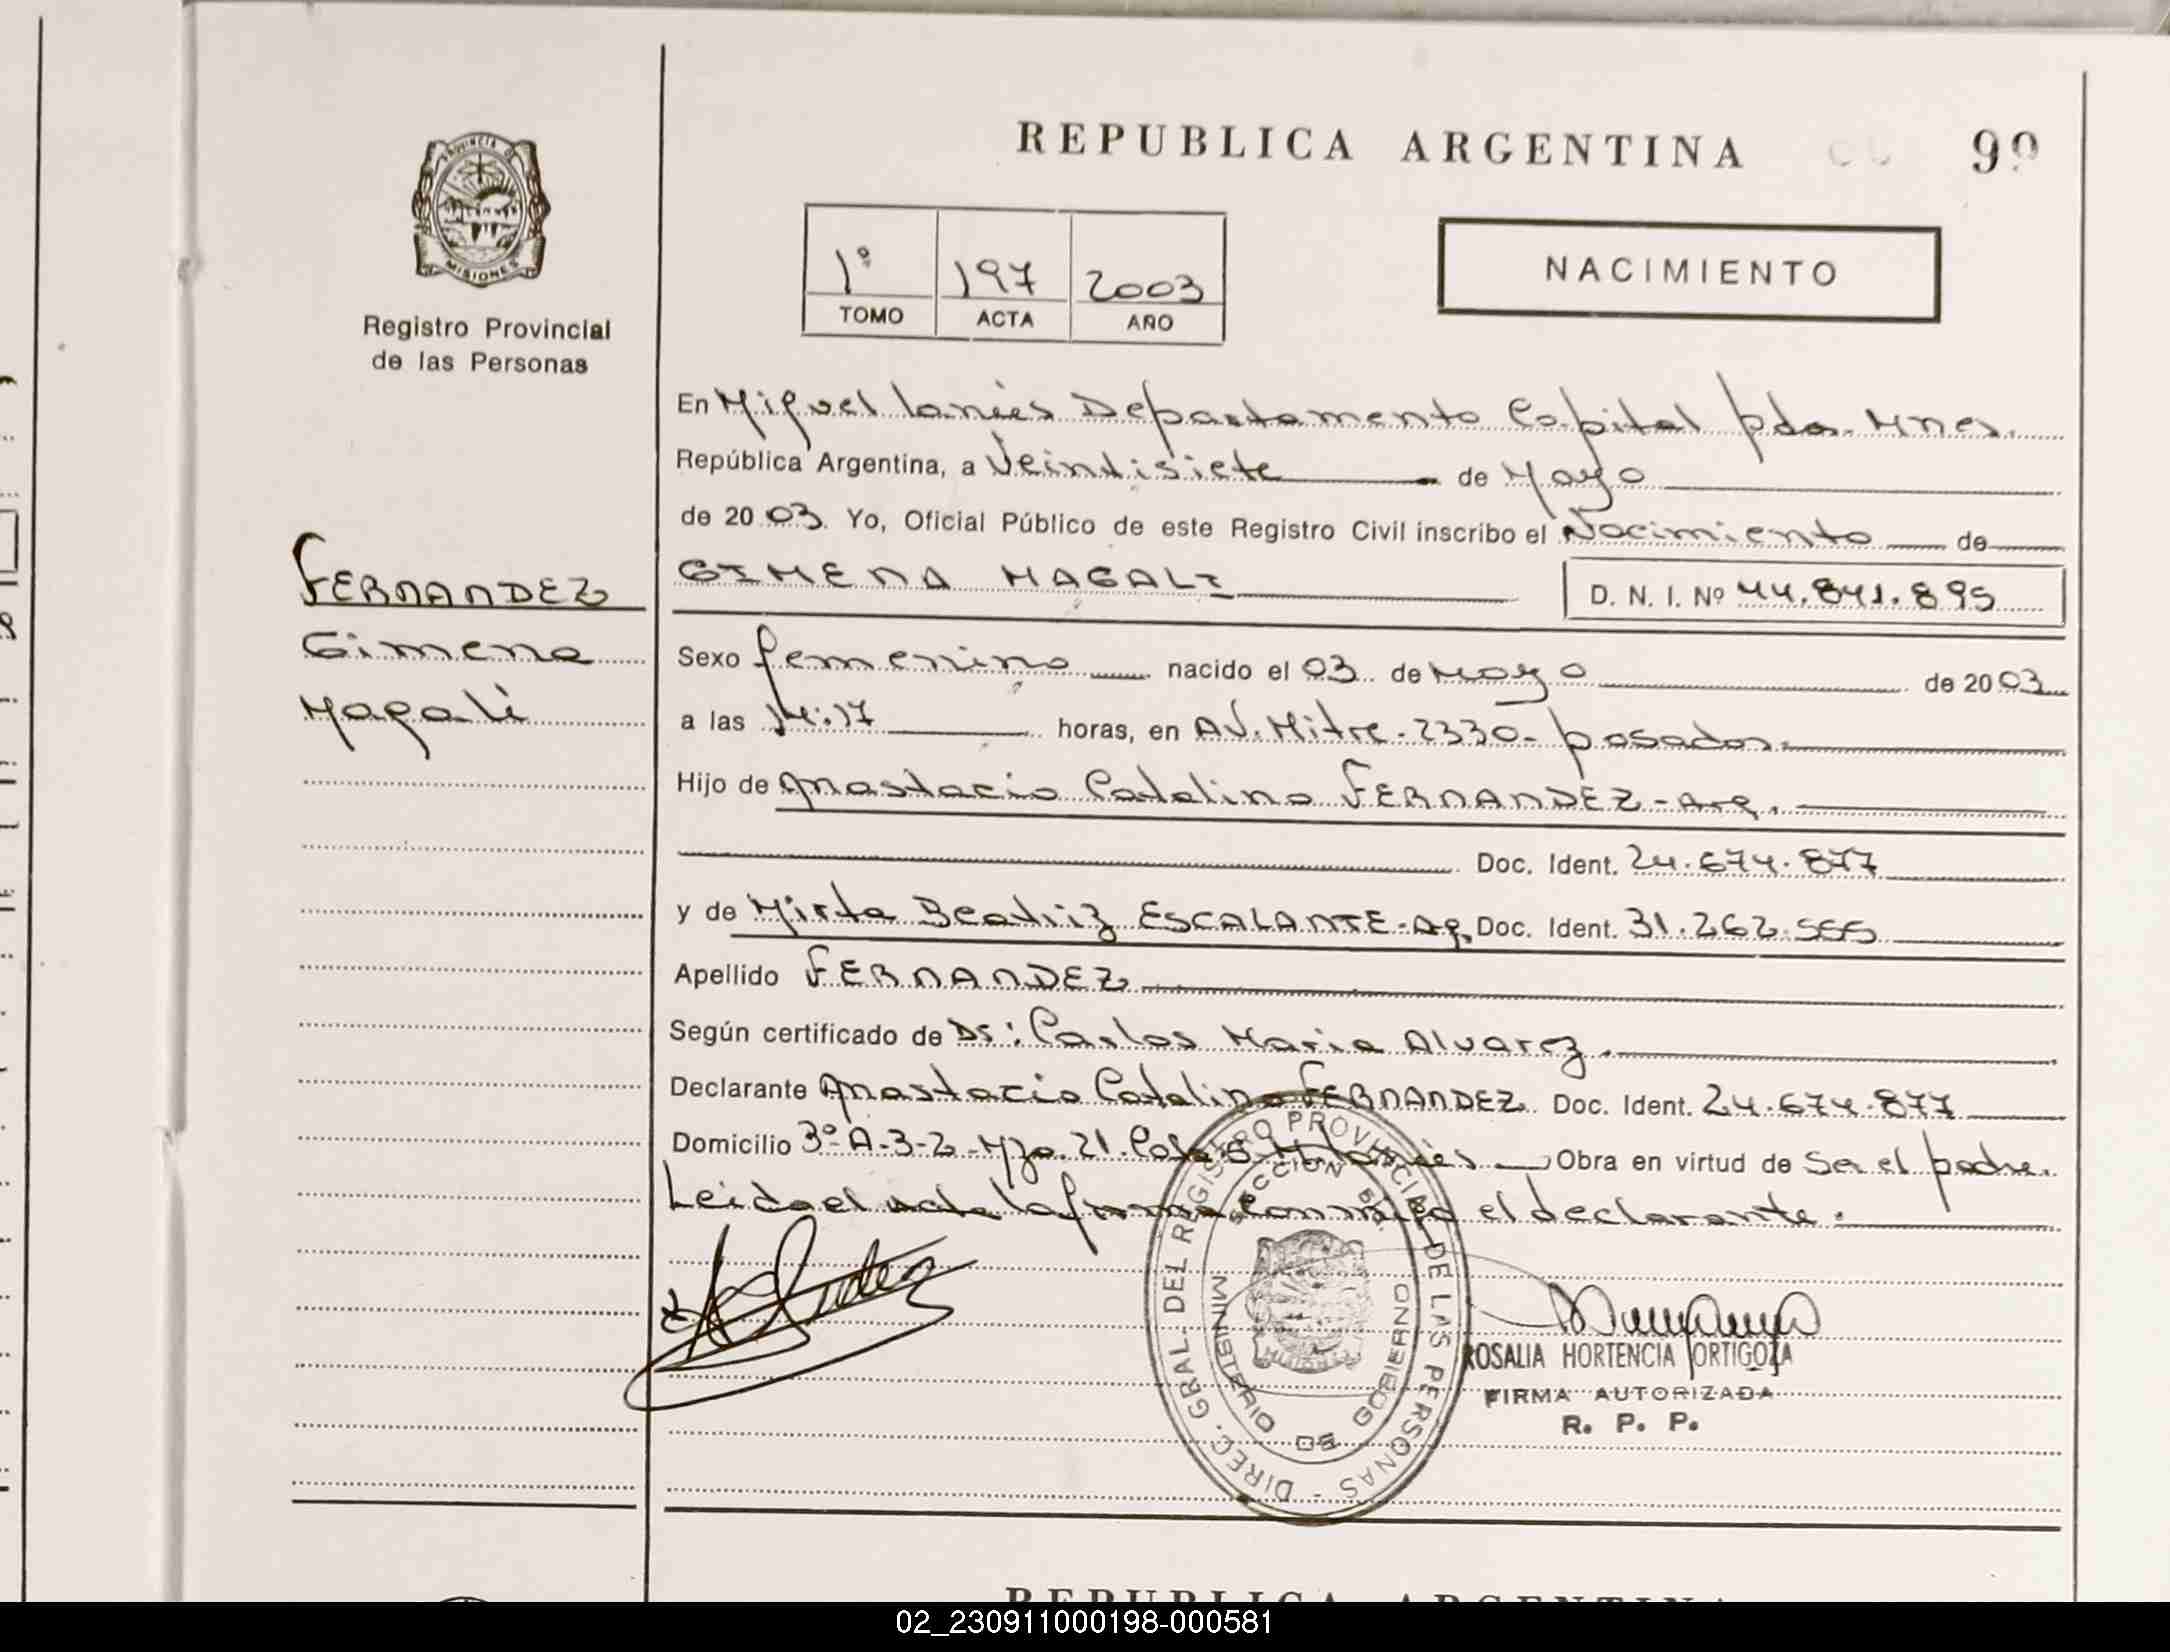 REPUBLICA ARGENTINA
99
PROVINCIA DE
MISIONES
Registro Provincial
de las Personas
1º 197 2003
TOMO ACTA AÑO
NACIMIENTO
En Miguel Lanús Departamento Capital pda. Mnes.
República Argentina, a Veintisiete de Mayo
de 2003. Yo, Oficial Público de este Registro Civil inscribo el Nacimiento de
GIMENA MAGALI
D. N. I. Nº 44.841.895
FERNANDEZ
Gimena
Magali
Sexo femenino nacido el 03 de Mayo de 2003
a las 14:17 horas, en AV. Mitre - 2330 - posadas.
Hijo de Anastacio Catalino FERNANDEZ - Arg.
Doc. Ident. 24.674.877
y de Mirta Beatriz ESCALANTE - Ag. Doc. Ident. 31.262.555
Apellido FERNANDEZ
Según certificado de Dr: Carlos Maria Alvarez.
Declarante Anastacio Catalino FERNANDEZ Doc. Ident. 24.674.877
Domicilio 3º-A-3-2-Mza. 21. Lanús Obra en virtud de Ser el padre.
Leida el acta la firma Conmigo el declarante.
DIREC. GRAL. DEL REGISTRO PROVINCIAL DE LAS PERSONAS -
MINISTERIO DE GOBIERNO
ROSALIA HORTENCIA ORTIGOZA
FIRMA AUTORIZADA
R. P. P.
REPUBLICA ARGENTINA
02_230911000198-000581